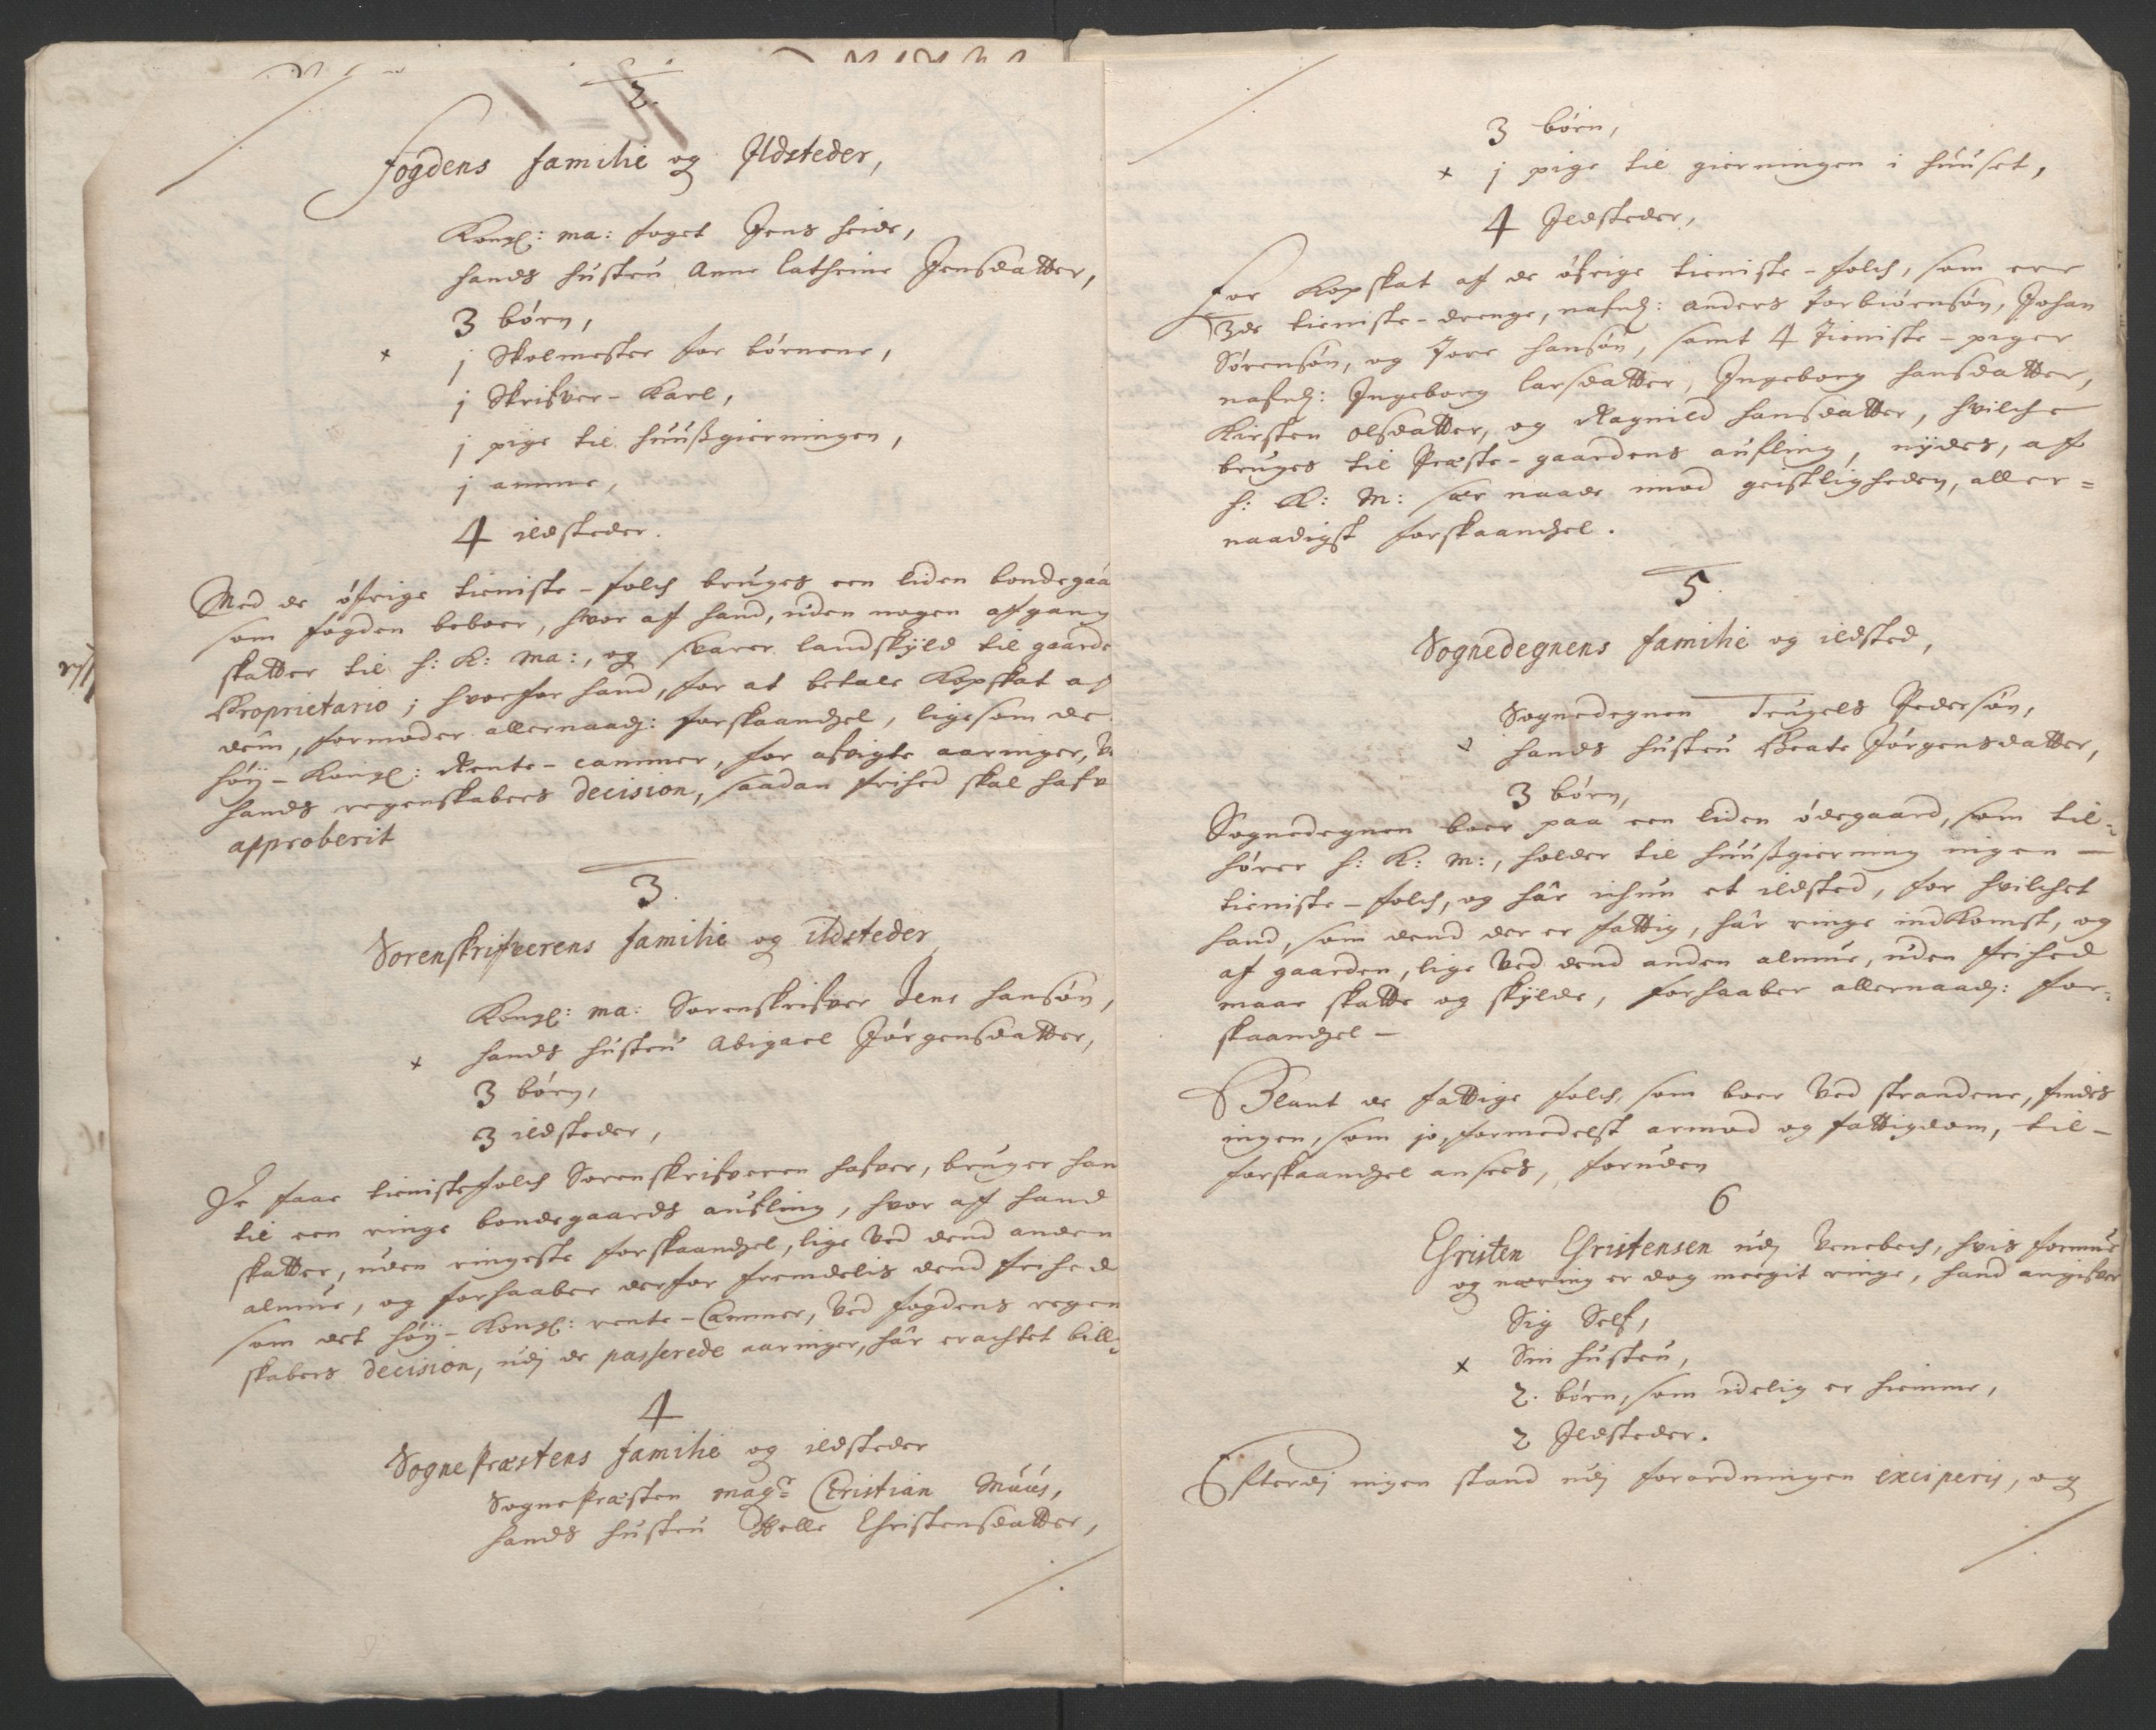 2.
Fogdens familie og Ildsteder,
Kongl: ma: foget Jens heide,
hands hustru Anne Cathrine Jensdatter,
3 børn,
× j Skolmester for børnene,
j Skrifver-Karl,
j pige til huußgierningen,
j amme,
4 ildsteder.
Med de øfrige tieniste-folch bruges een liden bondegaa
som fogden beboer, hvor af hand, uden nogen afgang
skatter til h: K: Ma:, og svarer landskyld til gaarde
Proprietario; hvorfor hand, for at betale Kopskat af
dem, formoder allernaadg: forskaandsel, ligesom de
høy-Kongl: Rente-cammer, for afvigte aaringer,
hands regenskabers decision, saadan frihed skal hafv
approberit
3.
Sorenskrifverens familie og ildsteder
Kongl: ma: Sorenskrifver Jens hansøn,
× hands hustru Abigael Jørgensdatter,
3 børn,
3 ildsteder,
De faae tienistefolch Sorenskrifveren hafver, bruger han
til een ringe bondegaards aufling, hvor af hand
skatter, uden ringeste forskaandsel, lige ved dend anden
almue, og forhaaber derfor fremdelis dend frihed
som det høy-Kongl: rente-Cammer, ved fogdens regen
skabers decision, udj de passerede aaringer, hâr erachtet bill-
4
Sognepræstens familie og ildsteder
Sognepræsten magr: Christian Muus,
hands hustru Helle Christensdatter,
3 børn,
× j pige til gierningen i huuset,
4 Ildsteder,
For Kopskat af de øfrige tieniste-folch, som ere
3de tieniste-drenge, nafnl: Anders Torbiørnsøn, Johan
Sørensøn, og Tore hansøn, samt 4 Tieniste-piger
nafnl: Ingeborg Larsdatter, Ingeborg hansdatter,
Kirsten olsdatter, og Ragnild hansdatter, hvilche
bruges til Præste-gaardens aufling, nydes, af
h: K: M: sær naade imod geistligheden, aller-
naadigst forskaandsel.
5.
Sognedegnens familie og ildsted,
Sognedegnen Trugels Pedersøn,
hands hustru Beate Jørgensdatter,
3 børn,
Sognedegnen boer paa een liden ødegaard, som til-
hører h: K: M:, holder til huußgierning ingen
tieniste-folch, og hâr ichun et ildsted, for hvilchet
hand, som dend der er fattig, hâr ringe indkomst, og
af gaarden, lige ved dend anden almue, uden frihed
maae skatte og skylde, forhaaber allernaadg: for-
skaandsel-
Blant de fattige folch, som boer ved strandene, findes
ingen, som jo, formedelst armod og fattigdom, til-
forskaandsel ansees, foruden
6
Christen Christensen udj Venebech, hvis formue
og næring er dog meegit ringe, hand angifver
Sig Self,
× Sin hustru,
2. børn, som idelig er hiemme,
2 Ildsteder.
Efterdj ingen stand udj forordningen exciperis, og